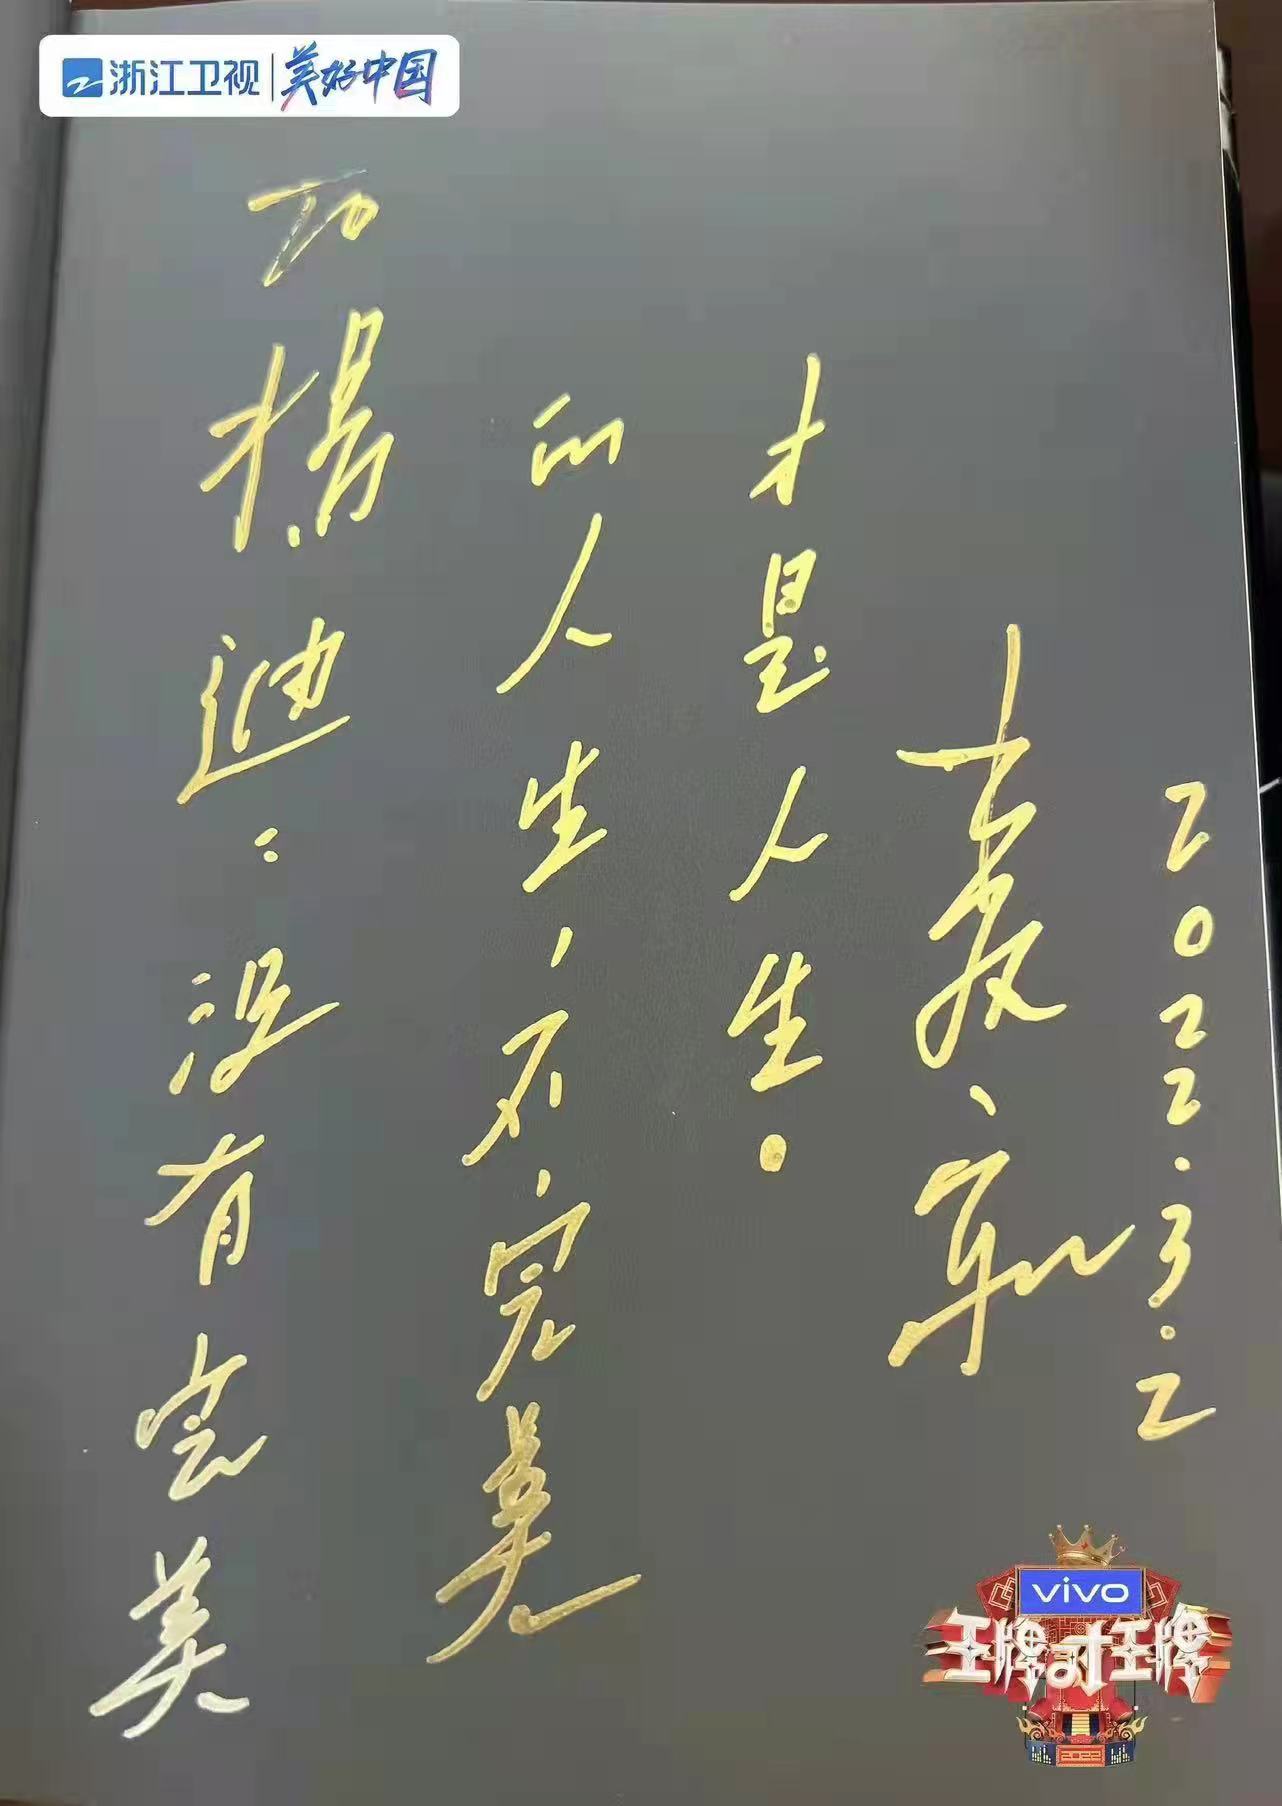 浙江卫视 美好中国
To
楊迪：没有完美
的人生，不完美
才是人生。
2022.3.2
vivo
王牌对王牌
2022